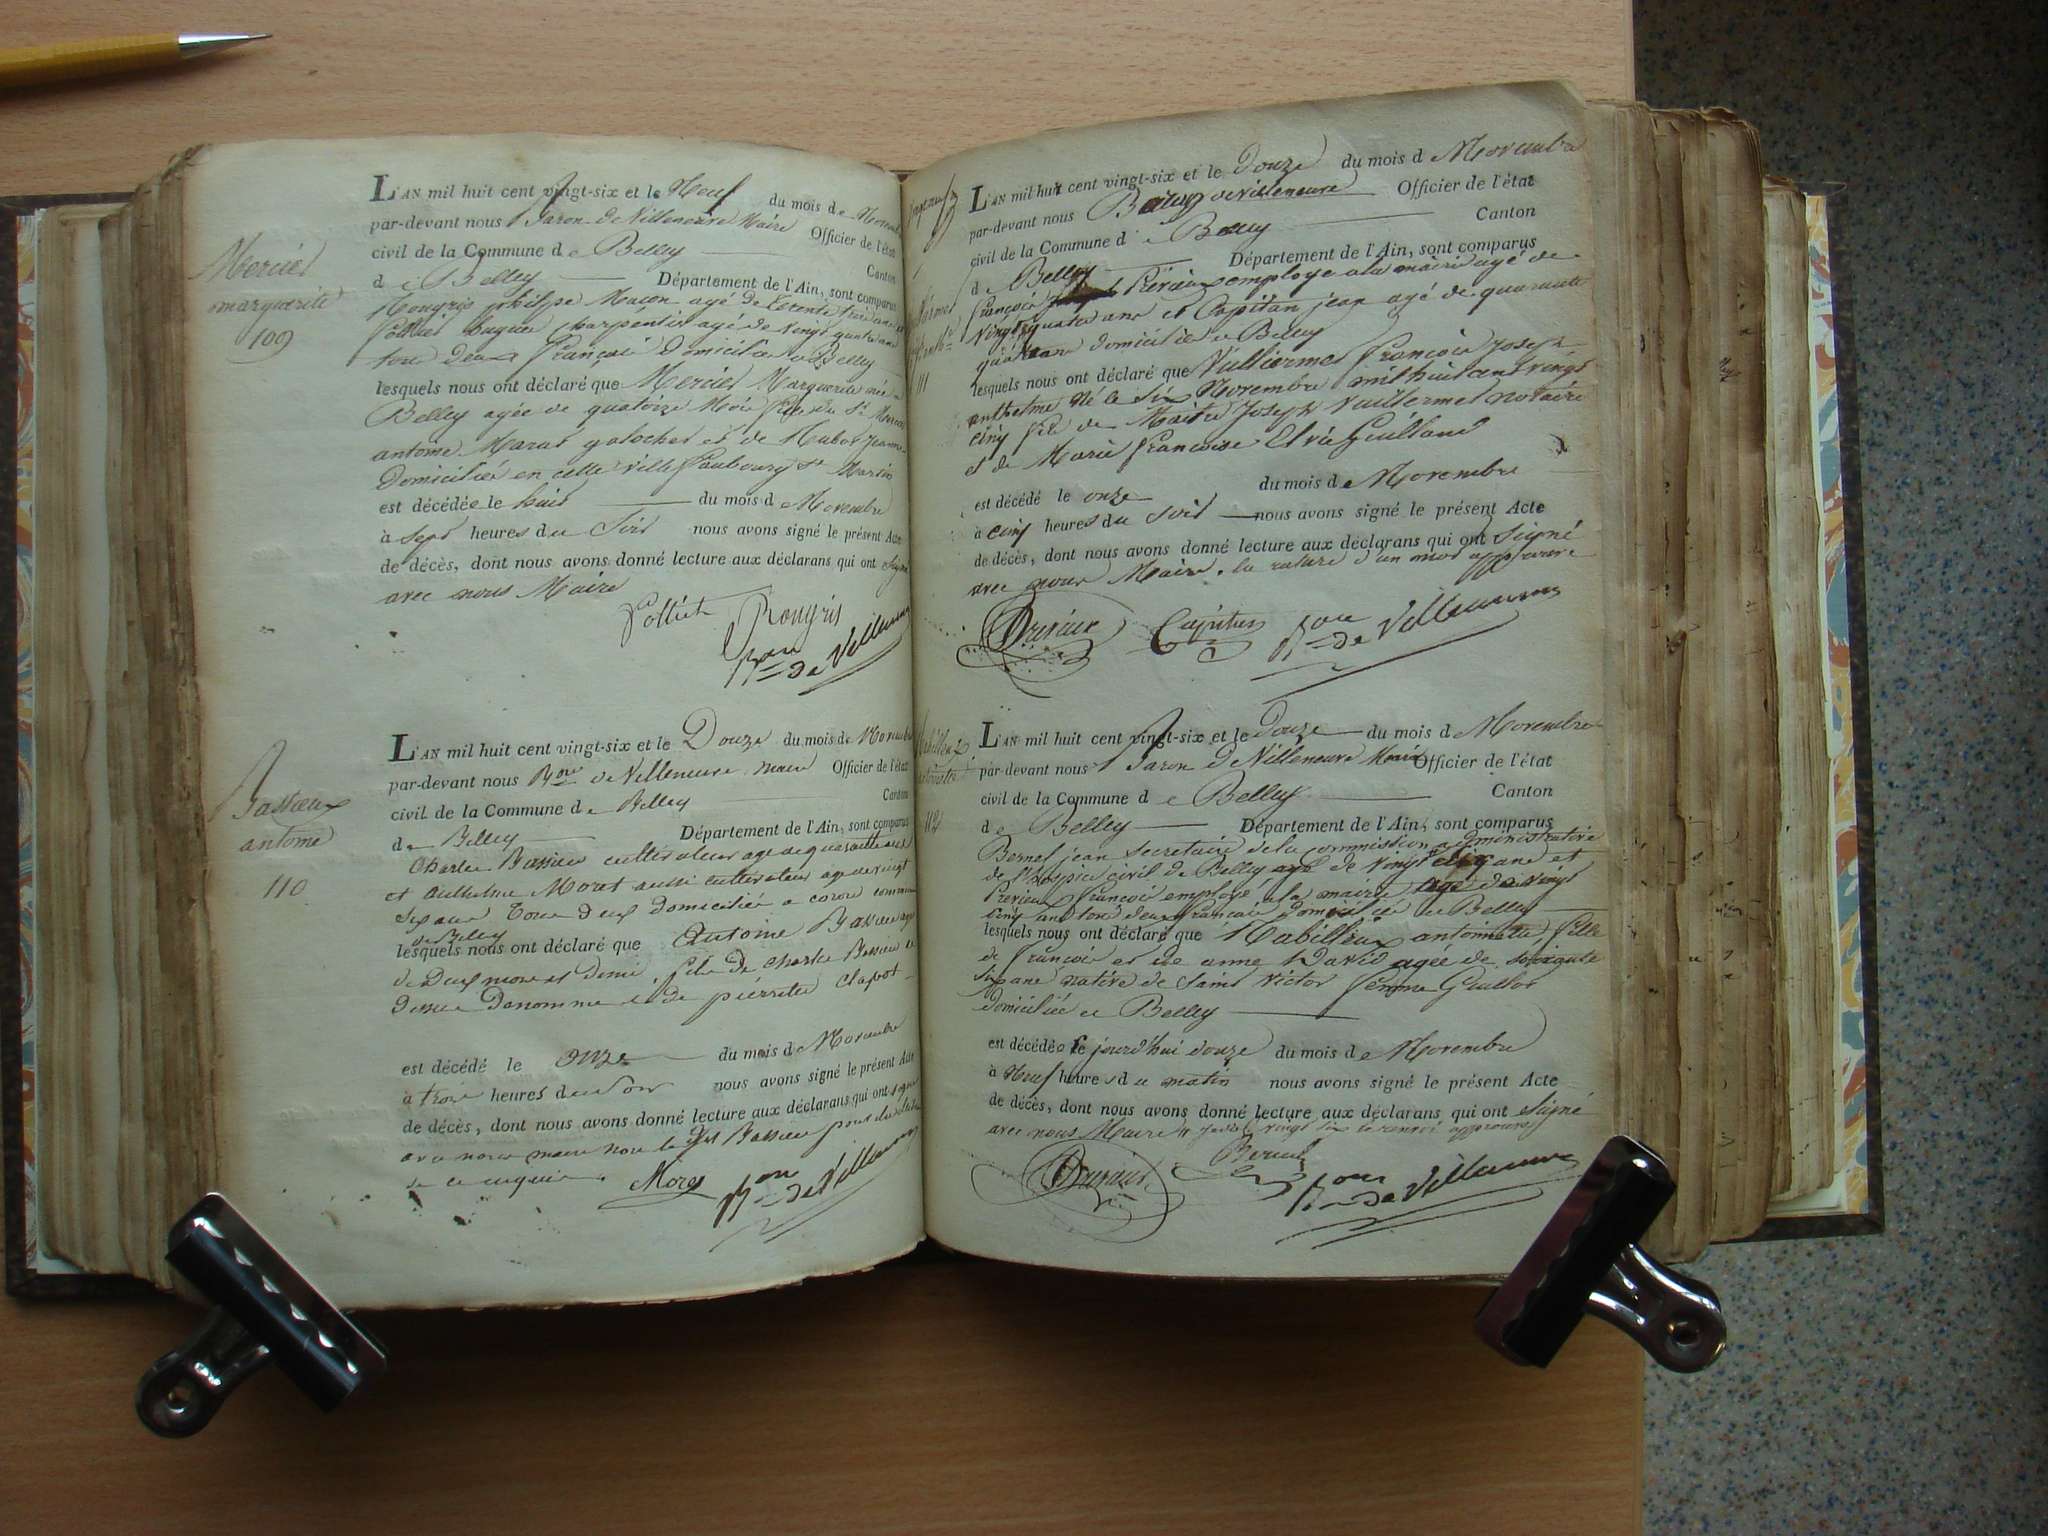 Mercier
marguerite
109
L'AN mil huit cent vingt-six et le Neuf du mois de Novem
par-devant nous Baron de Villeneuve Maire Officier de l'état
civil de la Commune d e Belley Canton
d e Belley Département de l'Ain, sont comparus
Rougris philipe Maçon agé de trente trois ans et
Pottier hugues charpentier agé de vingt quatre ans
tous deux français domiciliés a Belley
lesquels nous ont déclaré que Mercier Marguerite née a
Belley agée de quatorze Mois fille de Sr Mercier
antoine Marchd galocher et de Hubot Jeanne
Domiciliés en cette ville faubourg St Martin
est décédée le huit du mois d e Novembre
à sept heures du Soir nous avons signé le présent Acte
de décès, dont nous avons donné lecture aux déclarans qui ont signé
avec nous Maire
Pottier Rougris
Bon de Villeneuve
Bassieux
antoine
110
L'AN mil huit cent vingt-six et le Douze du mois de Novembre
par-devant nous Bon de Villeneuve maire Officier de l'état
civil de la Commune d e Belley Canton
d e Belley Département de l'Ain, sont comparus
Charles Bassieu cultivateur age de quarante
et Anthelme Moret aussi cultivateur age de vingt
six ans tous deux domiciliés a coron commune
de Belley
lesquels nous ont déclaré que Antoine Bassieu agé
de Deux mois et demi, fils de Charles Bassieu ci
dessus denommé et de pierrette Clapot
est décédé le onze du mois d e Novembre
à trois heures du soir nous avons signé le présent Acte
de décès, dont nous avons donné lecture aux déclarans qui ont signé
avec nous maire non le dit Bassieu pour
de ce enquis.
Moret Bon de Villeneuve
111
L'AN mil huit cent vingt-six et le Douze du mois d e Novembre
par-devant nous Baron de Villeneuve Officier de l'état
civil de la Commune d e Belley Canton
d e Belley Département de l'Ain, sont comparus
françois Prévieux employe a la mairie agé de
vingt quatre ans et Capitan jean agé de quarante
quatre ans domiciliés a Belley
lesquels nous ont déclaré que Vuillermet françois Joseph
anthelme né le six Novembre mil huit cent vingt
cinq fils de Maitre Joseph Vuillermet notaire
et de Marie françoise Elvie Guilland
est décédé le onze du mois d e Novembre
à cinq heures du soir nous avons signé le présent Acte
de décès, dont nous avons donné lecture aux déclarans qui ont signé
avec nous Maire. la rature d'un mot approuvée
Prévieux Capitan Bon de Villeneuve
112
L'AN mil huit cent vingt-six et le Douze du mois d e Novembre
par-devant nous Baron de Villeneuve Maire Officier de l'état
civil de la Commune d e Belley Canton
d e Belley Département de l'Ain, sont comparus
Bernel jean secretaire de la commission administrative
de l'hospice civil de Belley agé de vingt six ans et
Prévieux françois employé a la mairie agé de vingt
cinq ans tous deux français domiciliés a Belley
lesquels nous ont déclaré que Rabilloux antoinette fille
de françois et de anne David agée de soixante
six ans native de Saint Victor femme Guillot
domiciliée a Belley
est décédée cejourd'hui douze du mois d e Novembre
à Neuf heures du matin nous avons signé le présent Acte
de décès, dont nous avons donné lecture aux déclarans qui ont signé
avec nous Maire vingt six le renvoi approuvé
Prévieux Bernel Bon de Villeneuve